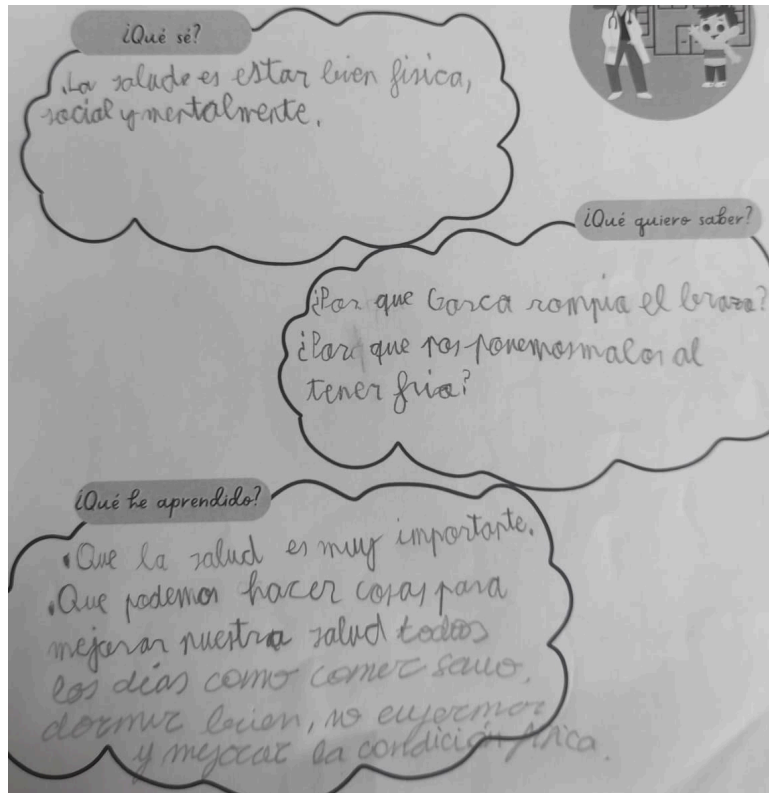 ¿Qué sé?
.La salude es estar bien fisica,
social y mentalmente.
¿Qué quiero saber?
¿Por que Garca rompia el brazo?
¿Por que nos ponemos malos al
tener frio?
¿Qué he aprendido?
.Que la salud es muy importante.
.Que podemos hacer cosas para
mejorar nuestra salud todos
los días como comer sano,
dormir bien, no enfermar
y mejorar la condición física.